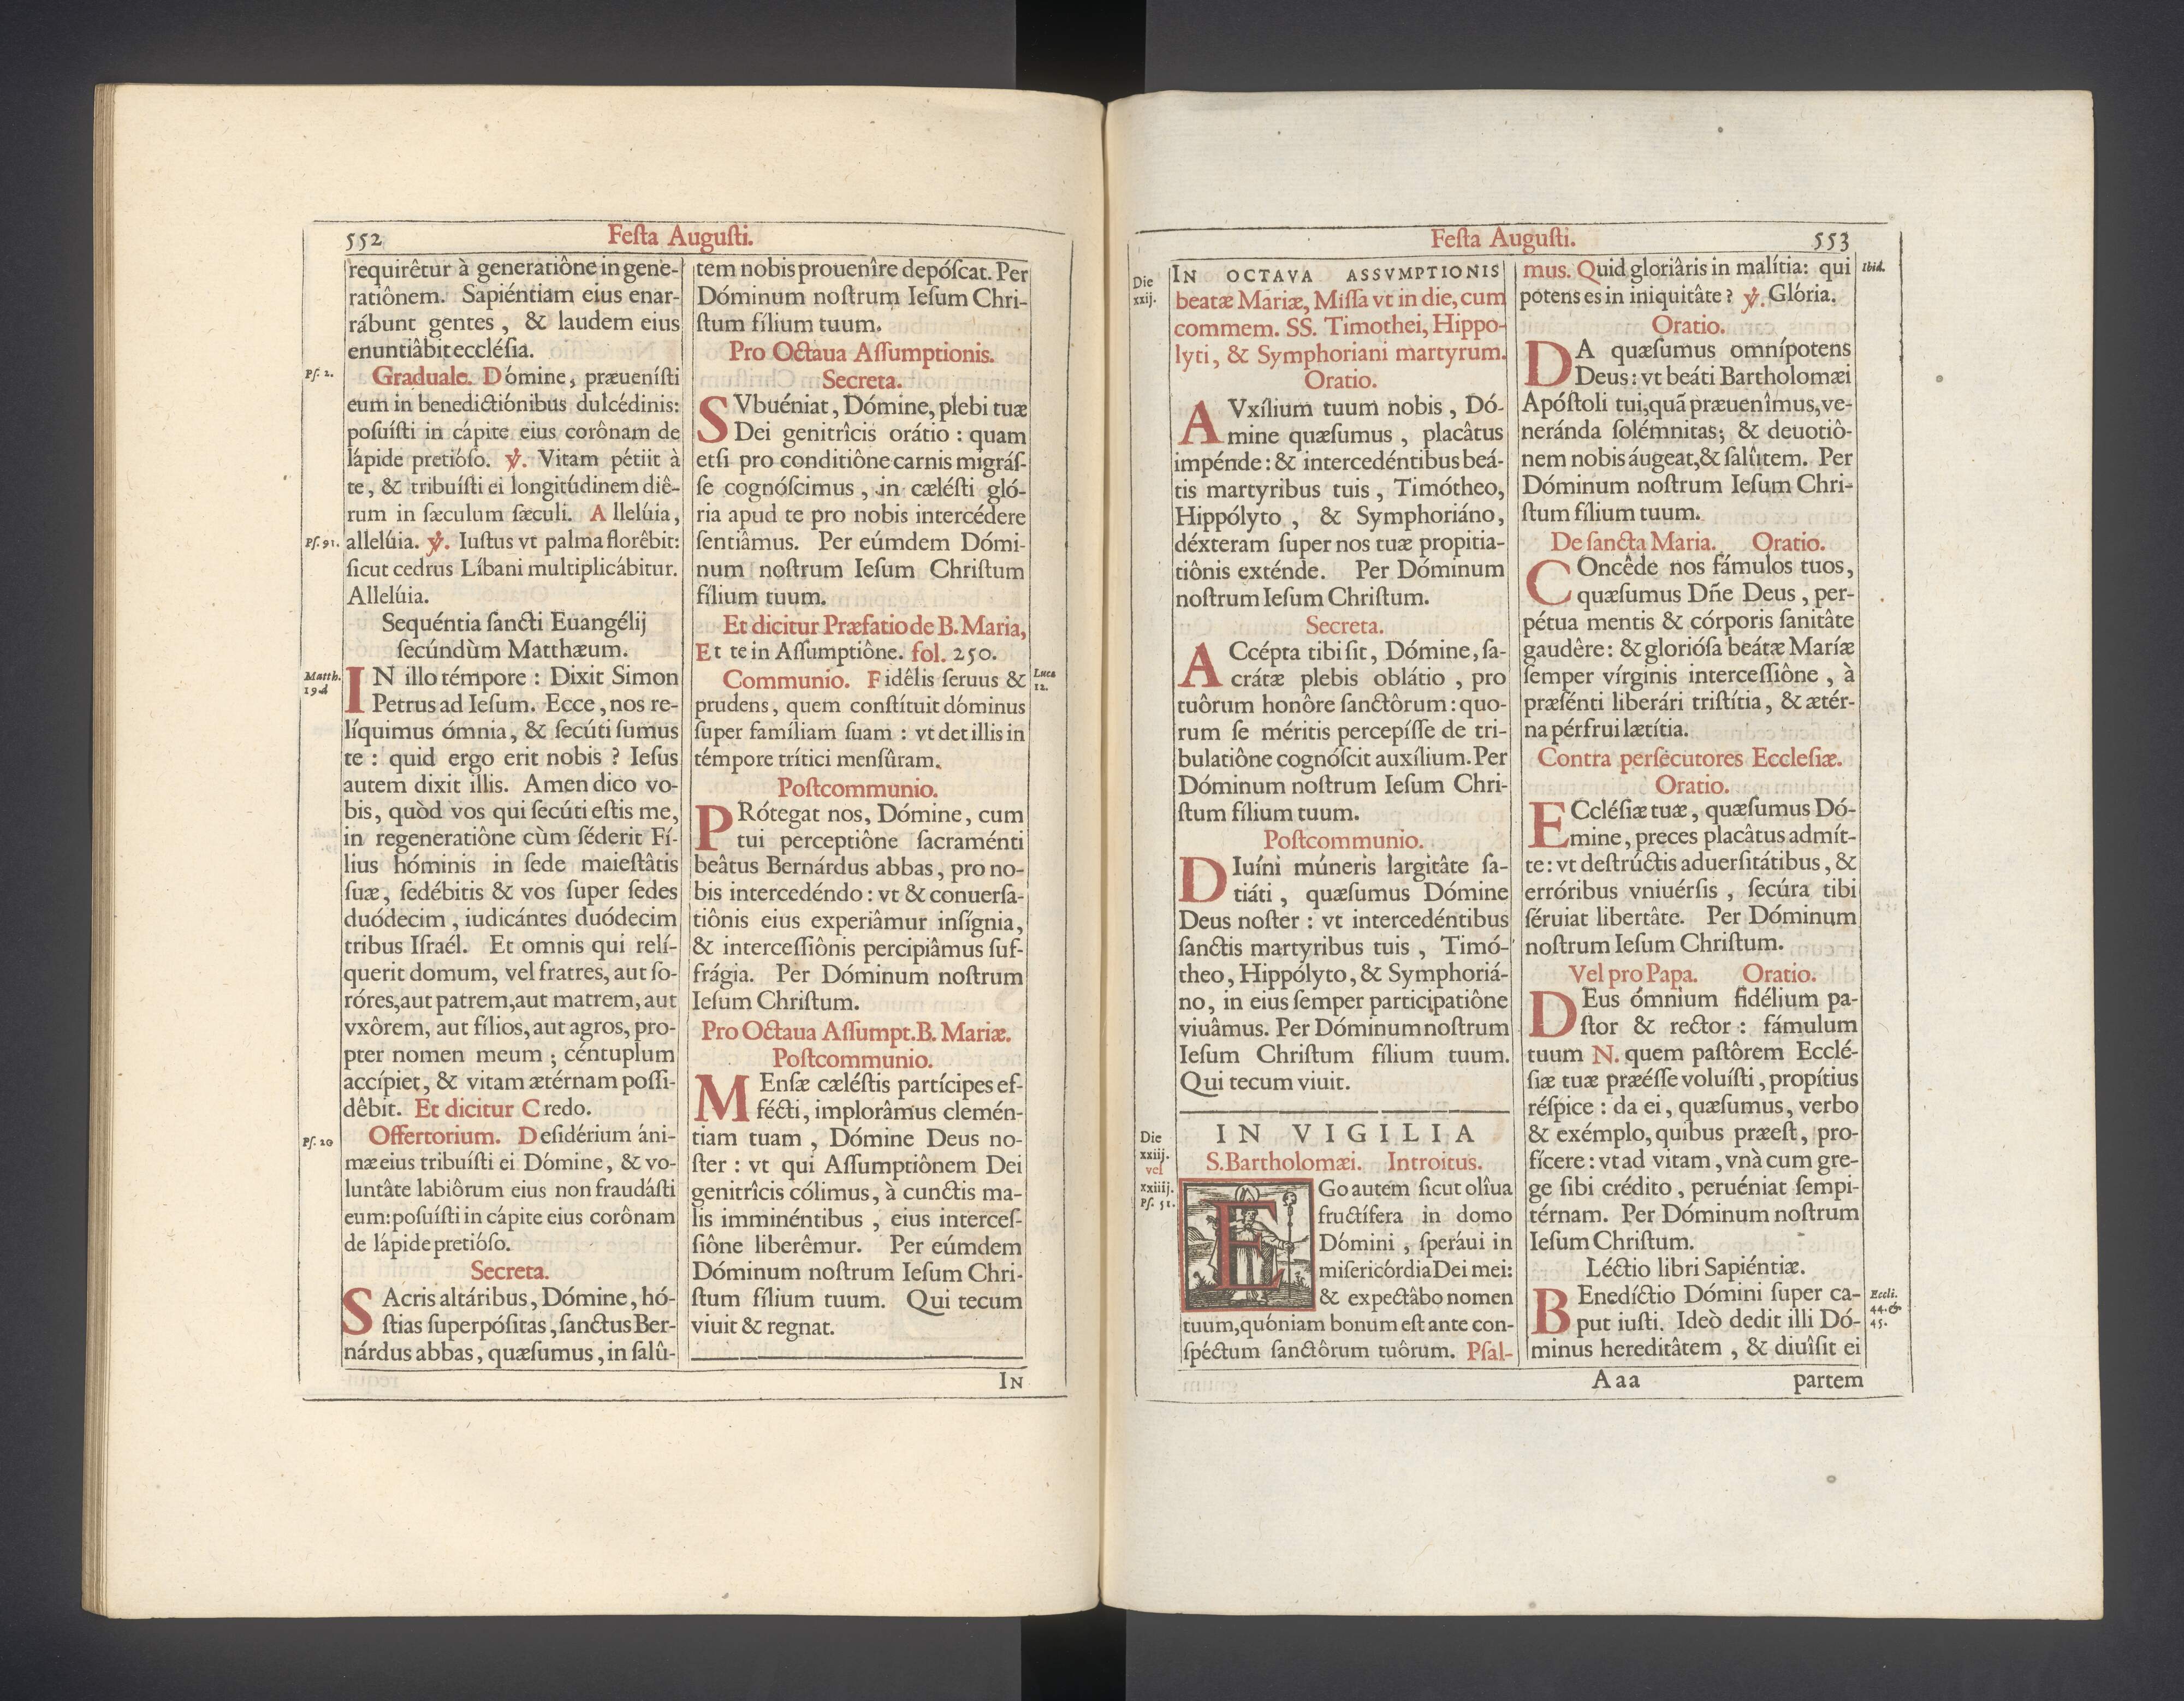 552
Feſta Auguſti.
requirêtur à generatiône in gene-
ratiônem. Sapiéntiam eius enar-
rábunt gentes, & laudem eius
enuntiâbit eccléſia.
Pſ. 2.
Graduale. Dómine, præueníſti
eum in benedictiónibus dulcédinis:
poſuíſti in cápite eius corônam de
lápide pretióſo. ℣. Vitam pétiit à
te, & tribuíſti ei longitúdinem diê-
rum in ſæculum ſæculi. Allelúia,
Pſ. 91.
allelúia. ℣. Iuſtus vt palma florêbit:
ſicut cedrus Líbani multiplicábitur.
Allelúia.
Sequéntia ſancti Euangélij
ſecúndùm Matthæum.
Matth.
19 d
IN illo témpore: Dixit Simon
Petrus ad Ieſum. Ecce, nos re-
líquimus ómnia, & ſecúti ſumus
te: quid ergo erit nobis? Ieſus
autem dixit illis. Amen dico vo-
bis, quòd vos qui ſecúti eſtis me,
in regeneratiône cùm ſéderit Fí-
lius hóminis in ſede maieſtâtis
ſuæ, ſedébitis & vos ſuper ſedes
duódecim, iudicántes duódecim
tribus Iſraél. Et omnis qui relí-
querit domum, vel fratres, aut ſo-
róres, aut patrem, aut matrem, aut
vxôrem, aut fílios, aut agros, pro-
pter nomen meum; céntuplum
accípiet, & vitam ætérnam poſſi-
dêbit. Et dicitur Credo.
Pſ. 20
Offertorium. Deſidérium áni-
mæ eius tribuíſti ei Dómine, & vo-
luntâte labiôrum eius non fraudáſti
eum: poſuíſti in cápite eius corônam
de lápide pretióſo.
Secreta.
SAcris altáribus, Dómine, hó-
ſtias ſuperpóſitas, ſanctus Ber-
nárdus abbas, quæſumus, in ſalû-
tem nobis prouenîre depóſcat. Per
Dóminum noſtrum Ieſum Chri-
ſtum fílium tuum.
Pro Octaua Aſſumptionis.
Secreta.
SVbuéniat, Dómine, plebi tuæ
Dei genitrîcis orátio: quam
etſi pro conditiône carnis migráſ-
ſe cognóſcimus, in cæléſti gló-
ria apud te pro nobis intercédere
ſentiâmus. Per eúmdem Dómi-
num noſtrum Ieſum Chriſtum
fílium tuum.
Et dicitur Præfatio de B. Maria,
Et te in Aſſumptiône. fol. 250.
Communio. Fidêlis ſeruus &
Lucæ
12.
prudens, quem conſtítuit dóminus
ſuper famíliam ſuam: vt det illis in
témpore trítici menſûram.
Poſtcommunio.
PRótegat nos, Dómine, cum
tui perceptiône ſacraménti
beâtus Bernárdus abbas, pro no-
bis intercedéndo: vt & conuerſa-
tiônis eius experiâmur inſígnia,
& interceſſiônis percipiâmus ſuf-
frágia. Per Dóminum noſtrum
Ieſum Chriſtum.
Pro Octaua Aſſumpt. B. Mariæ.
Poſtcommunio.
MEnſæ cæléſtis partícipes ef-
fécti, implorâmus clemén-
tiam tuam, Dómine Deus no-
ſter: vt qui Aſſumptiônem Dei
genitrîcis cólimus, à cunctis ma-
lis imminéntibus, eius interceſ-
ſiône liberêmur. Per eúmdem
Dóminum noſtrum Ieſum Chri-
ſtum fílium tuum. Qui tecum
viuit & regnat.
IN
Feſta Auguſti.
553
Die
xxij.
IN OCTAVA ASSVMPTIONIS
beatæ Mariæ, Miſſa vt in die, cum
commem. SS. Timothei, Hippo-
lyti, & Symphoriani martyrum.
Oratio.
AVxílium tuum nobis, Dó-
mine quæſumus, placâtus
impénde: & intercedéntibus beá-
tis martyribus tuis, Timótheo,
Hippólyto, & Symphoriáno,
déxteram ſuper nos tuæ propitia-
tiônis exténde. Per Dóminum
noſtrum Ieſum Chriſtum.
Secreta.
ACcépta tibi ſit, Dómine, ſa-
crátæ plebis oblátio, pro
tuôrum honôre ſanctôrum: quo-
rum ſe méritis percepíſſe de tri-
bulatiône cognóſcit auxílium. Per
Dóminum noſtrum Ieſum Chri-
ſtum fílium tuum.
Poſtcommunio.
DIuíni múneris largitâte ſa-
tiáti, quæſumus Dómine
Deus noſter: vt intercedéntibus
ſanctis martyribus tuis, Timó-
theo, Hippólyto, & Symphoriá-
no, in eius ſemper participatiône
viuâmus. Per Dóminum noſtrum
Ieſum Chriſtum fílium tuum.
Qui tecum viuit.
Die
xxiij.
vel
xxiiij.
Pſ. 51.
IN VIGILIA
S. Bartholomæi. Introitus.
EGo autem ſicut olîua
fructífera in domo
Dómini, ſperáui in
miſericórdia Dei mei:
& expectâbo nomen
tuum, quóniam bonum eſt ante con-
ſpéctum ſanctôrum tuôrum. Pſal-
mus. Quid gloriâris in malítia: qui
Ibid.
potens es in iniquitâte? ℣. Glória.
Oratio.
DA quæſumus omnípotens
Deus: vt beáti Bartholomæi
Apóſtoli tui, quã præuenîmus, ve-
neránda ſolémnitas; & deuotiô-
nem nobis áugeat, & ſalûtem. Per
Dóminum noſtrum Ieſum Chri-
ſtum fílium tuum.
De ſancta Maria. Oratio.
COncêde nos fámulos tuos,
quæſumus Dñe Deus, per-
pétua mentis & córporis ſanitâte
gaudêre: & glorióſa beátæ Maríæ
ſemper vírginis interceſſiône, à
præſénti liberári triſtítia, & ætér-
na pérfrui lætítia.
Contra perſecutores Eccleſiæ.
Oratio.
ECcléſiæ tuæ, quæſumus Dó-
mine, preces placâtus admít-
te: vt deſtrúctis aduerſitátibus, &
erróribus vniuérſis, ſecúra tibi
ſéruiat libertâte. Per Dóminum
noſtrum Ieſum Chriſtum.
Vel pro Papa. Oratio.
DEus ómnium fidélium pa-
ſtor & rector: fámulum
tuum N. quem paſtôrem Ecclé-
ſiæ tuæ præéſſe voluíſti, propítius
réſpice: da ei, quæſumus, verbo
& exémplo, quibus præeſt, pro-
fícere: vt ad vitam, vnà cum gre-
ge ſibi crédito, peruéniat ſempi-
térnam. Per Dóminum noſtrum
Ieſum Chriſtum.
Léctio libri Sapiéntiæ.
BEnedíctio Dómini ſuper ca-
Eccli.
44. &
45.
put iuſti. Ideò dedit illi Dó-
minus hereditâtem, & diuîſit ei
Aaa
partem